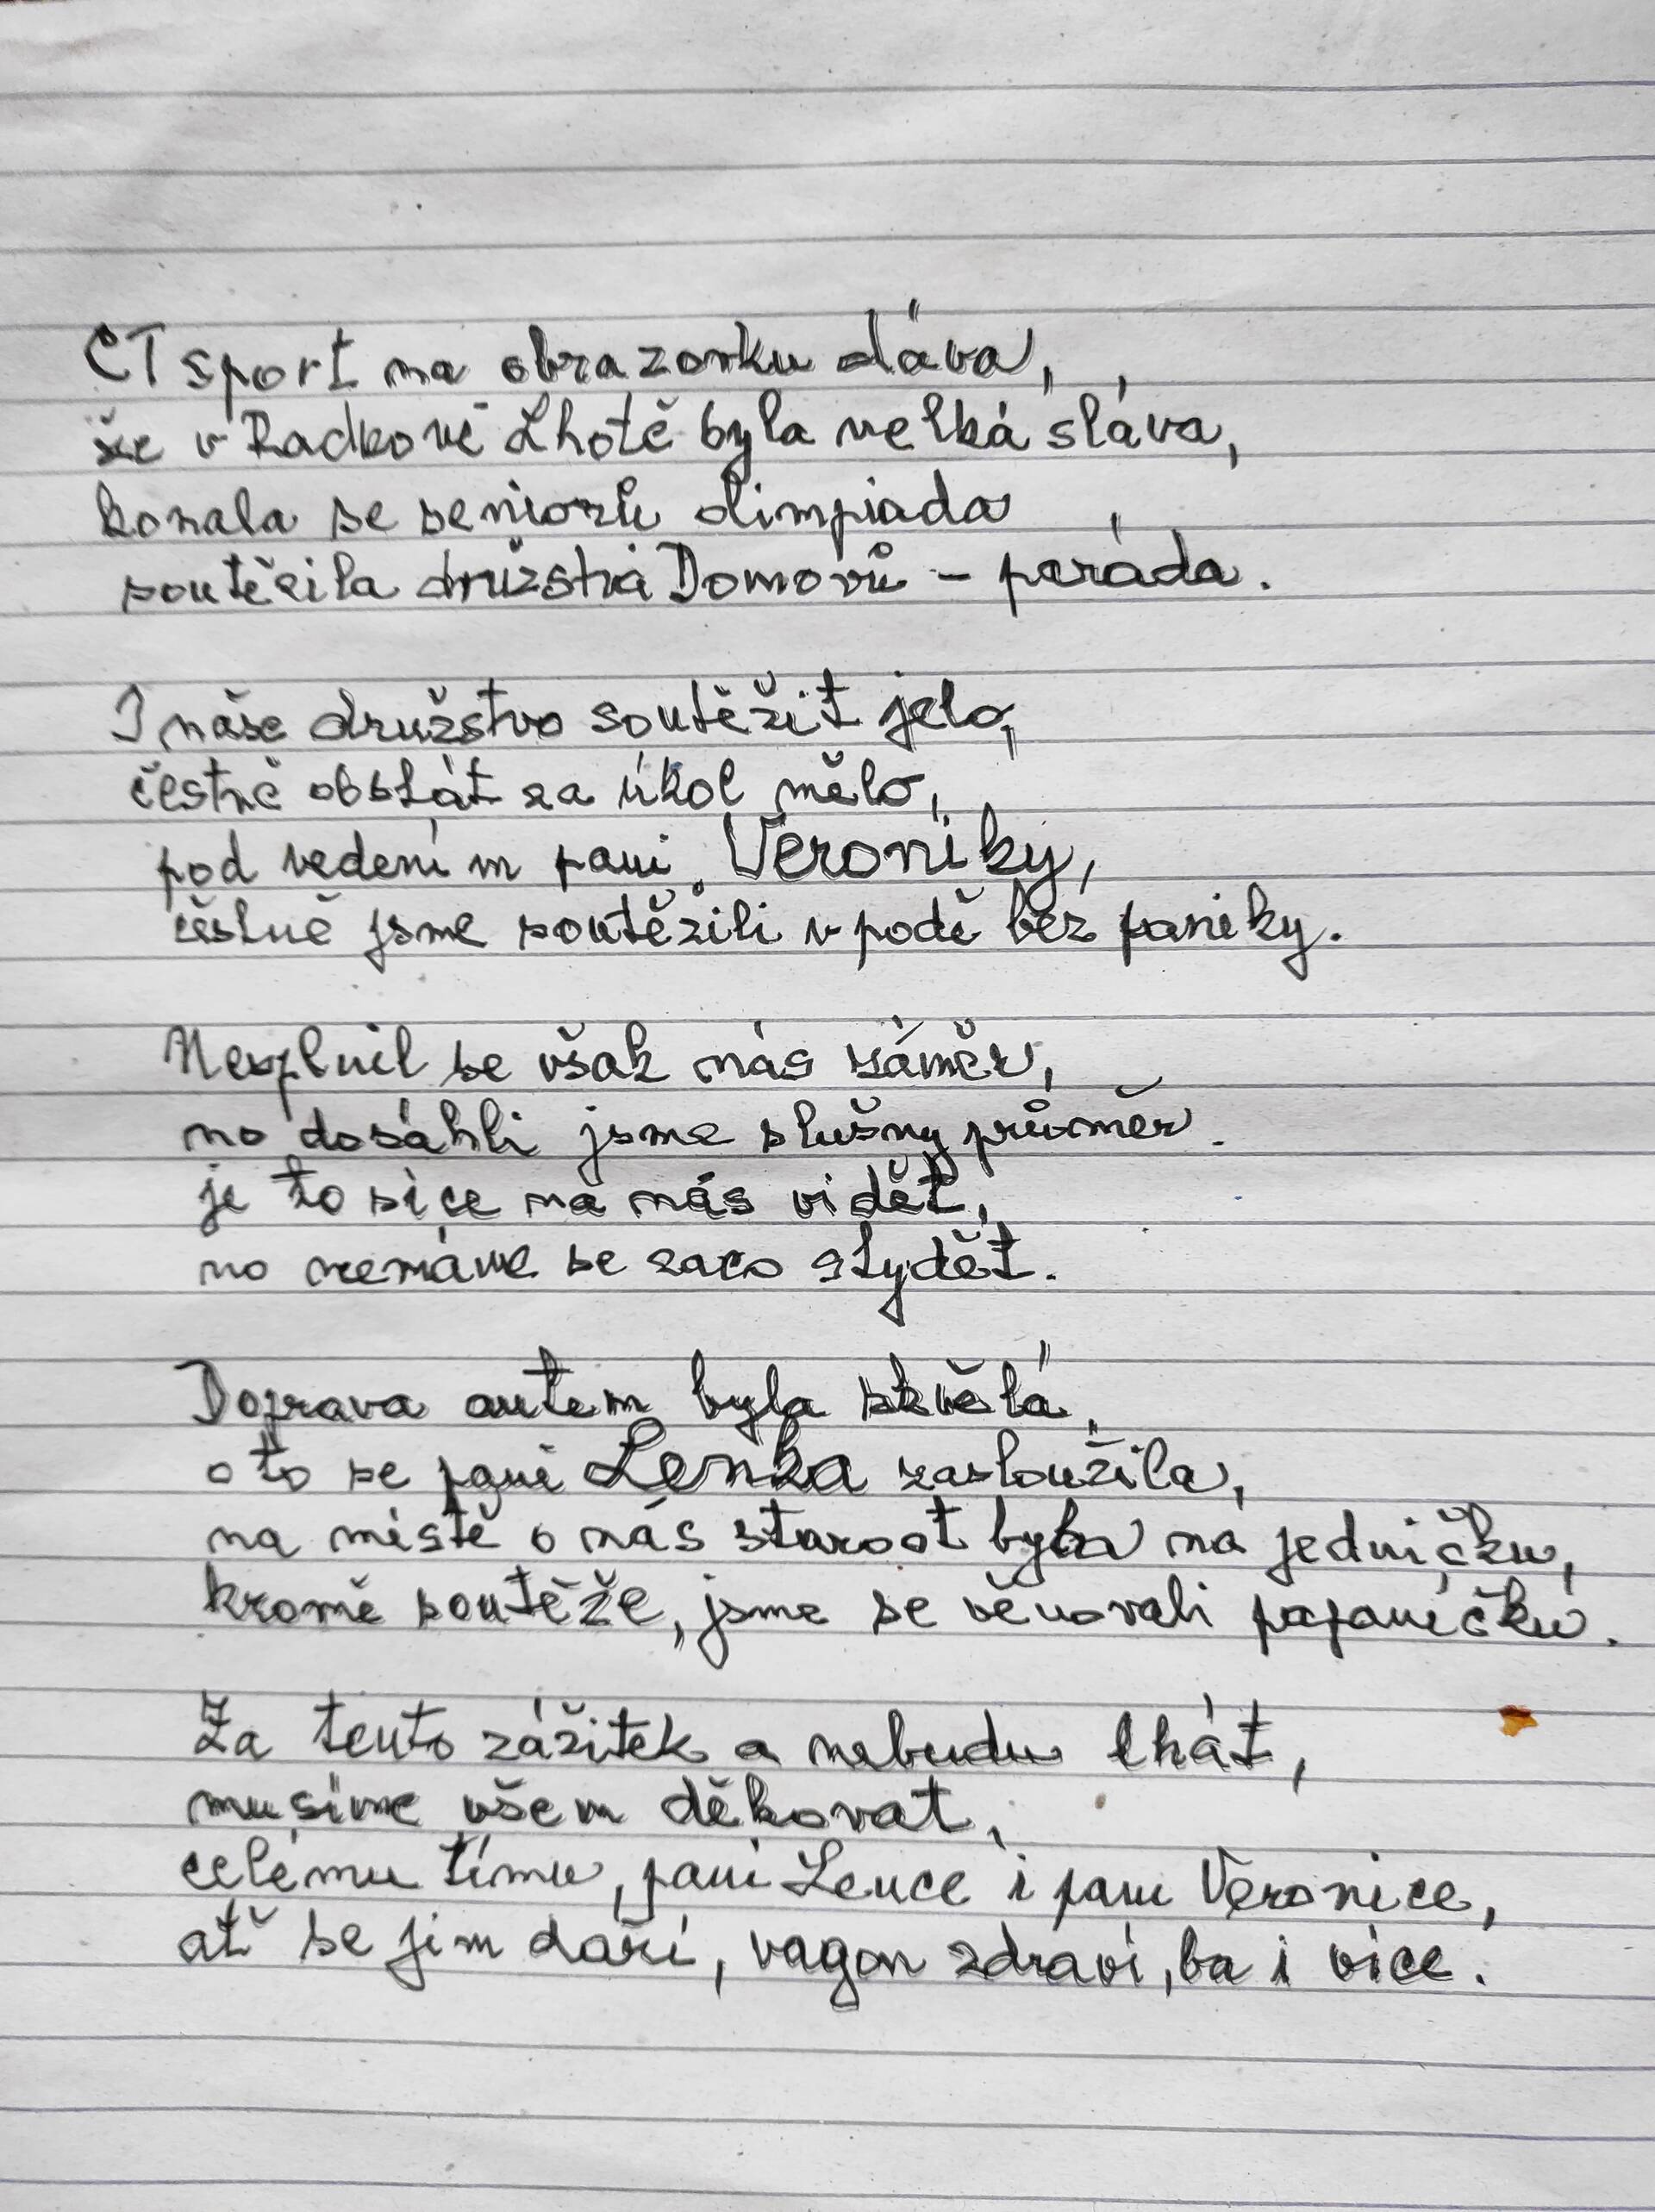 ČT sport na obrazovku dává,
že v Radkově Lhotě byla velká sláva,
konala se seniorů olimpiada
soutěžila družstva Domovů - paráda.
I naše družstvo soutěžit jelo,
čestně obstát za úkol mělo,
pod vedením paní Veroniky,
čestně jsme soutěžili v podě bez paniky.
Nesplnil se však nás záměr,
no dosáhli jsme slušny průměr.
je to sice na nás vidět,
no nemáme se zaco stydět.
Doprava autem byla skvělá,
o to se paní Lenka zasloužila,
na místě o nás starost byla na jedničku,
kromě soutěže, jsme se věnovali papaníčku.
Za tento zážitek a nebudu lhát,
musíme všem děkovat,
celému tímu, paní Lence i paní Veronice,
ať se jim daří, vagon zdraví, ba i více.